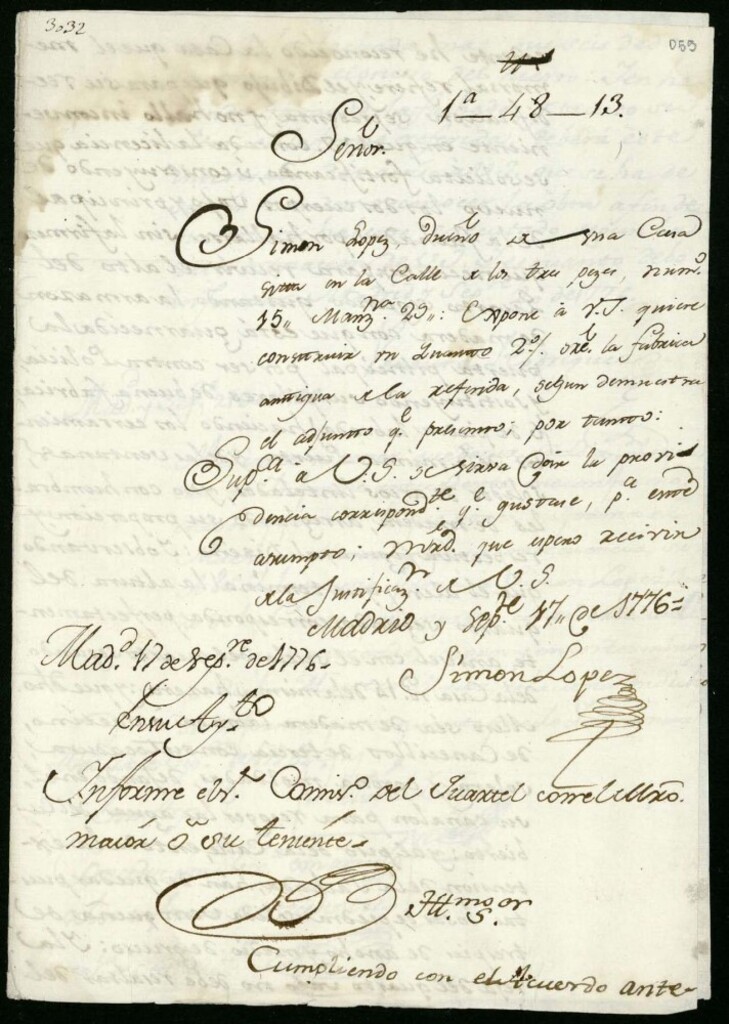 3032
055
1ª 48 - 13.
Señor.
Simon Lopez, dueño de una Casa
sita en la Calle de los tres pezes, num.º
15,, Manz.na 29,,: Expone à V.S. quiere
construir un quarto 2.º sre. la fabrica
antigua de la referida, segun demuestra
el adjunto q.e presento; por tanto:
Sup.ca à V.S. se sirva dar la provi
dencia correspond.te q.e gustase, p.a este
asumpto; mrd. que espero recivir
de la Justificaz.n de V.S.
Madrid y Sep.re 17,, de 1776=
Simon Lopez
Mad.d 17 de Sep.re de 1776.
En su Ay.to
Informe el Sr. Comis.º del Quartel con el Mro.
maior ò su teniente.
Ill.mo Sor
Cumpliendo con el Acuerdo ante-